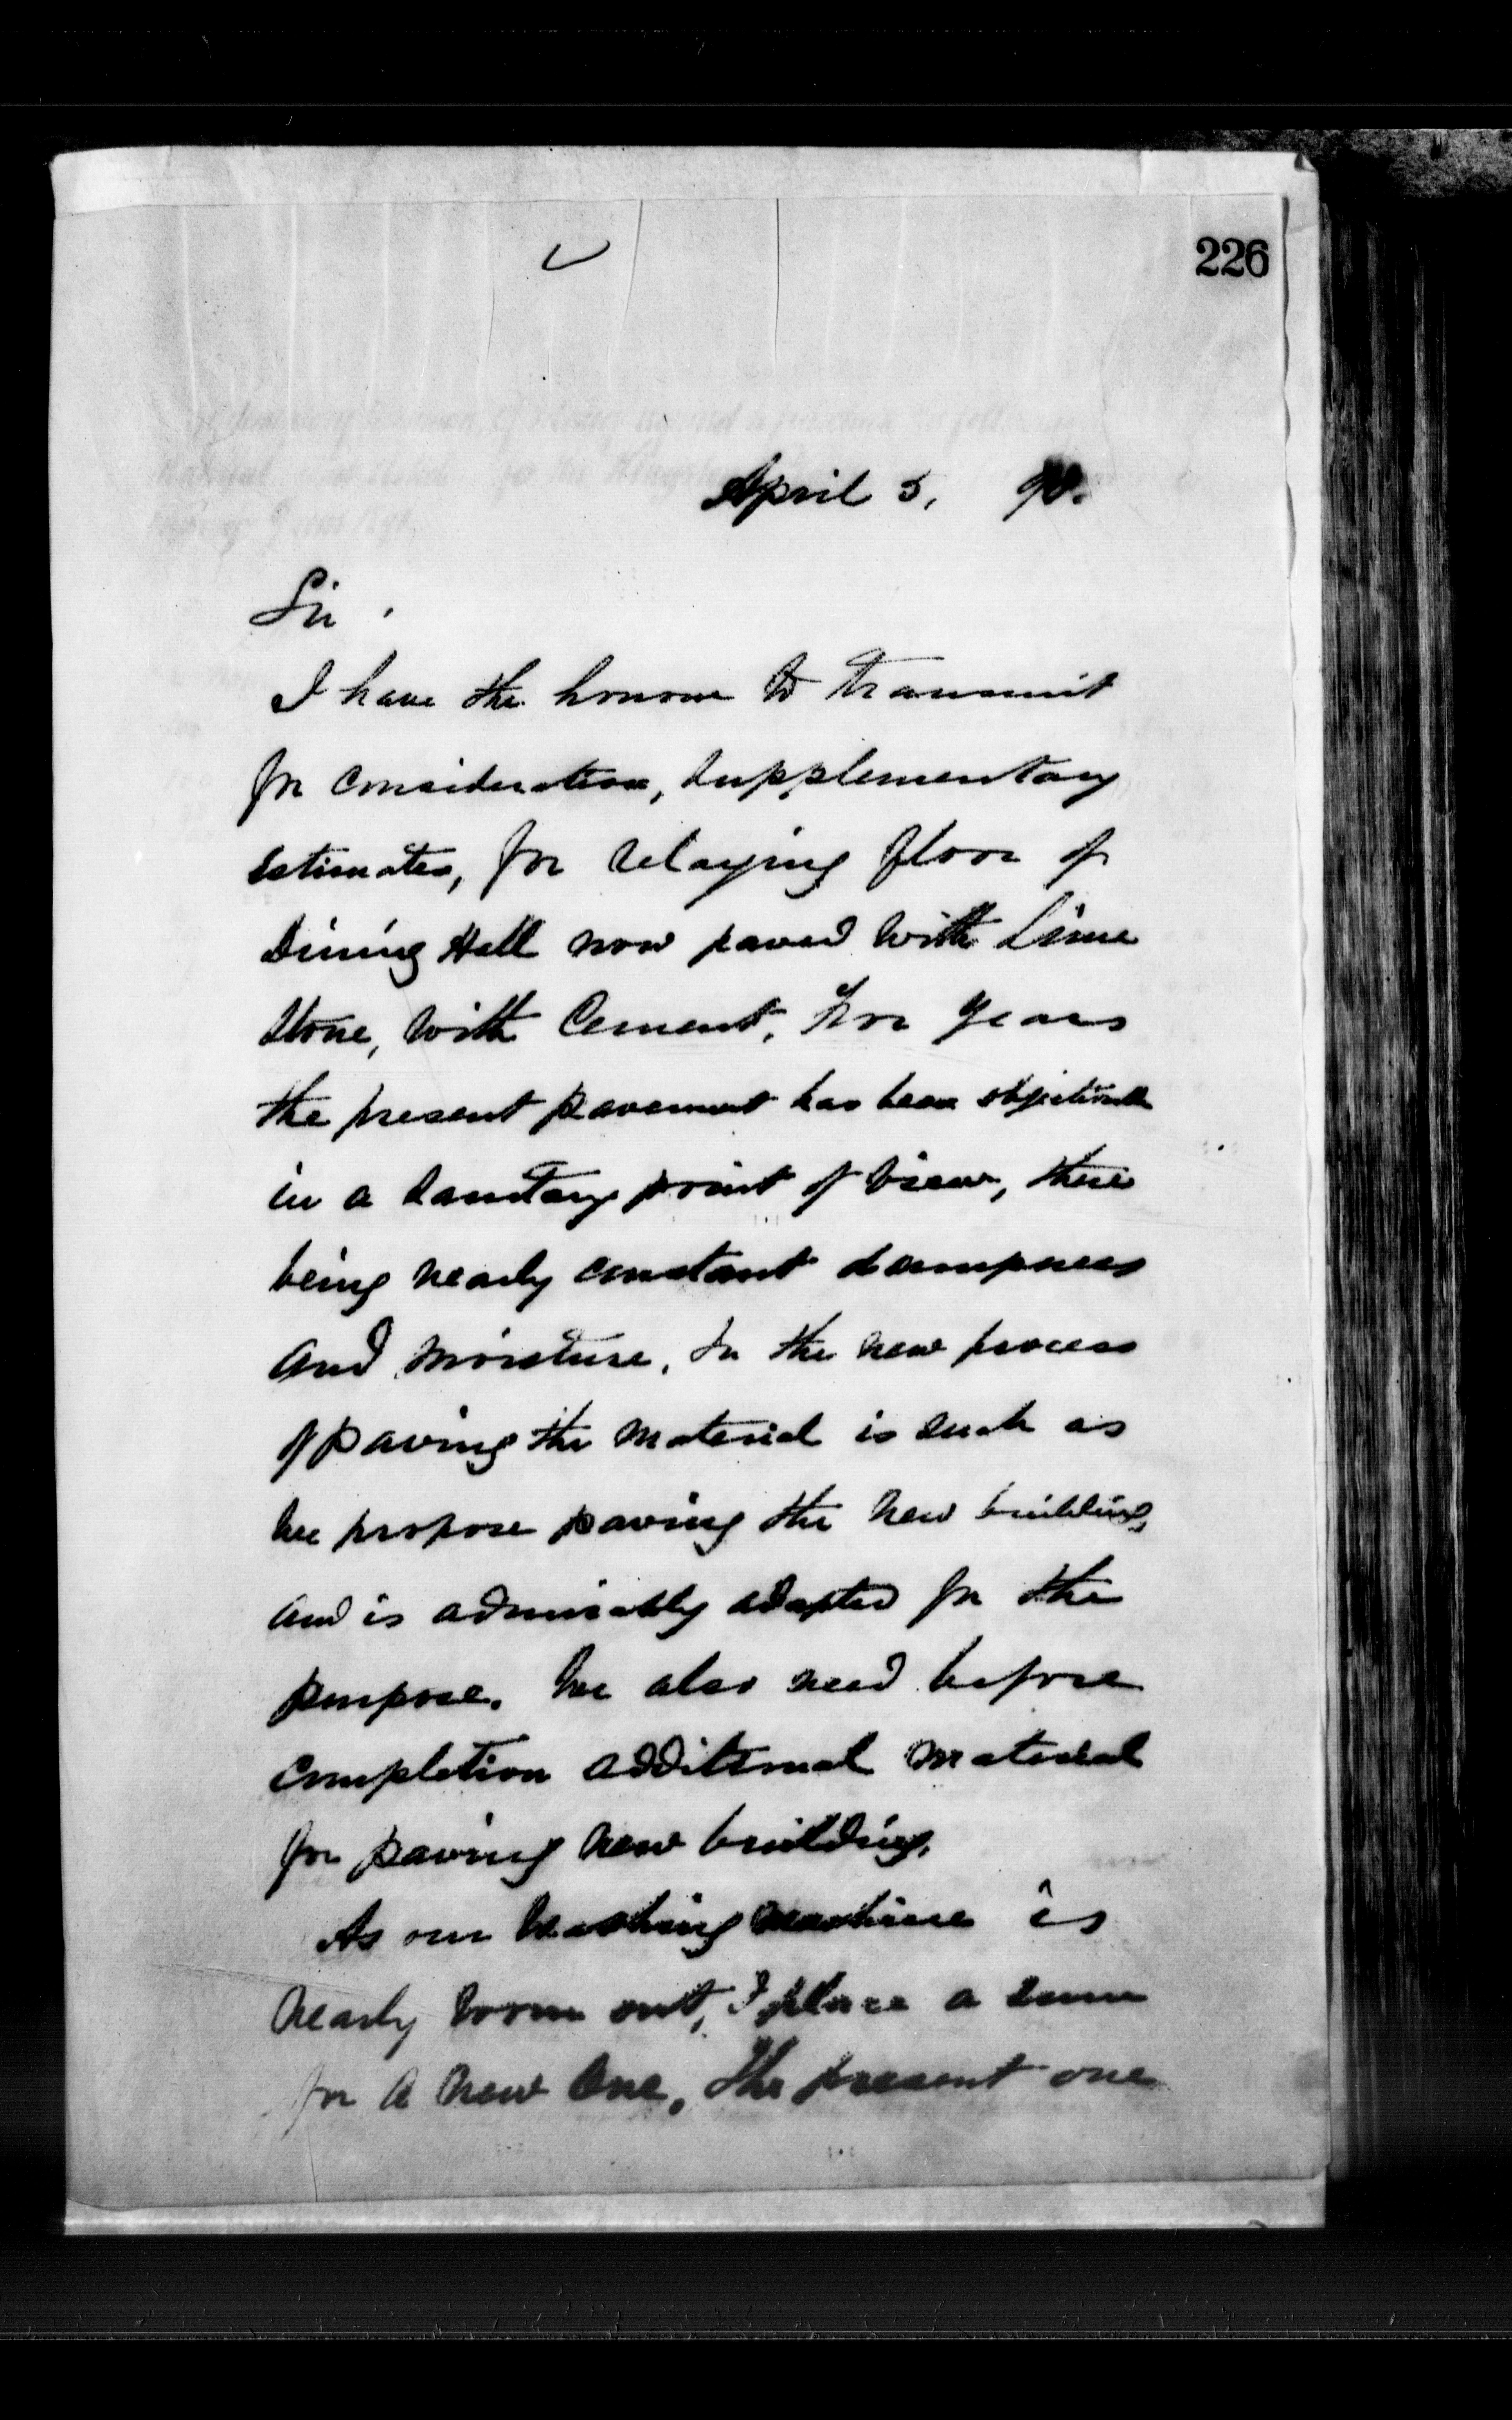 226
April 5, 90.
Sir,
I have the honour to transmit
for consideration, supplementary
estimates, for relaying floor of
Dining Hall now paved with lime
stone, with Cement, For years
the present pavement has been objectionable
in a sanitary point of view, there
being nearly constant dampness
and moisture. In the new process
of paving the material is such as
we propose paving the new building,
and is admirably adapted for the
purpose. We also need before
completion additional material
for paving new building.
As our washing machine is
nearly worn out, I place a sum
for a new one, the present one